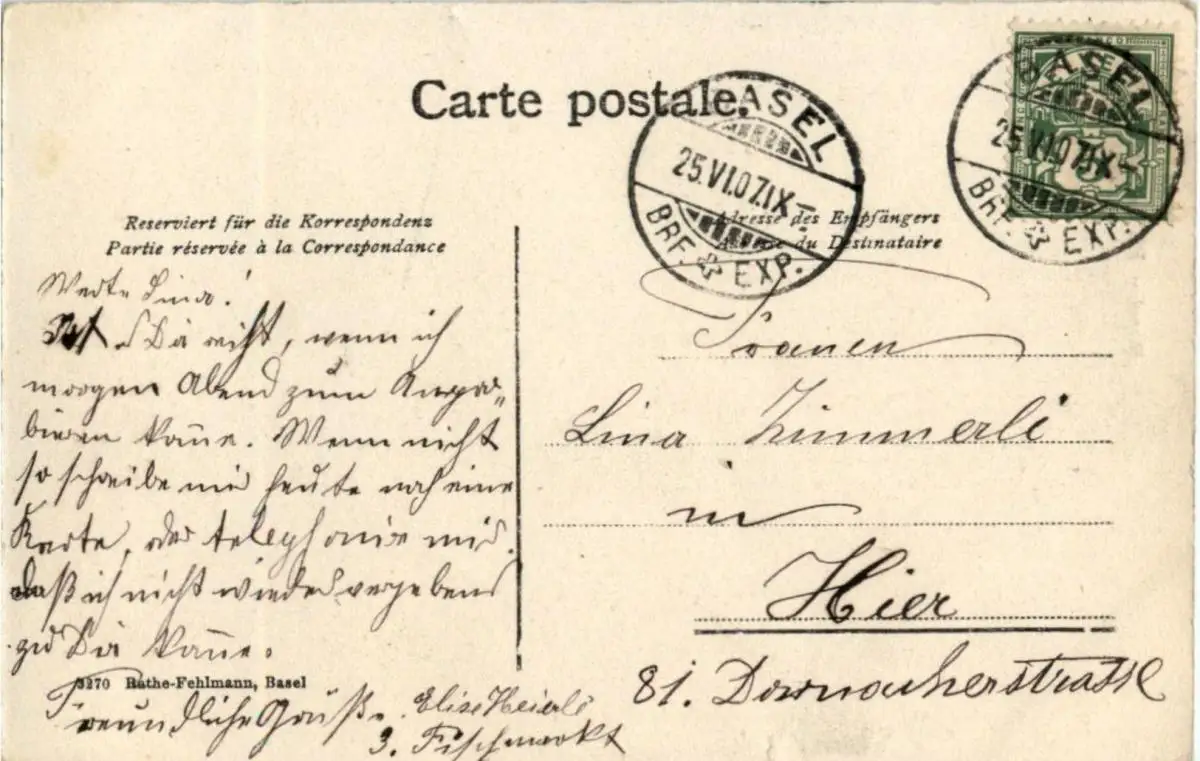 Carte postale.
BASEL
25.VI.07.IX-
BRF. EXP.
BASEL
25.VI.07.IX-
BRF. EXP.
Reserviert für die Korrespondenz
Partie réservée à la Correspondance
Adresse des Empfängers
Adresse du Destinataire
Werte Lina!
Ist Dir recht, wenn ich
morgen Abend zum
komme. Wenn nicht
so schreibe mir heute noch eine
Karte, oder telephonire mir,
daß ich nicht wieder vergebens
zu Dir komme.
3270 Rathe-Fehlmann, Basel
Freundliche Grüße. Elise Heierli
3. Fischmarkt
Lina Zimmerli
in
Hier
81. Dornacherstrasse